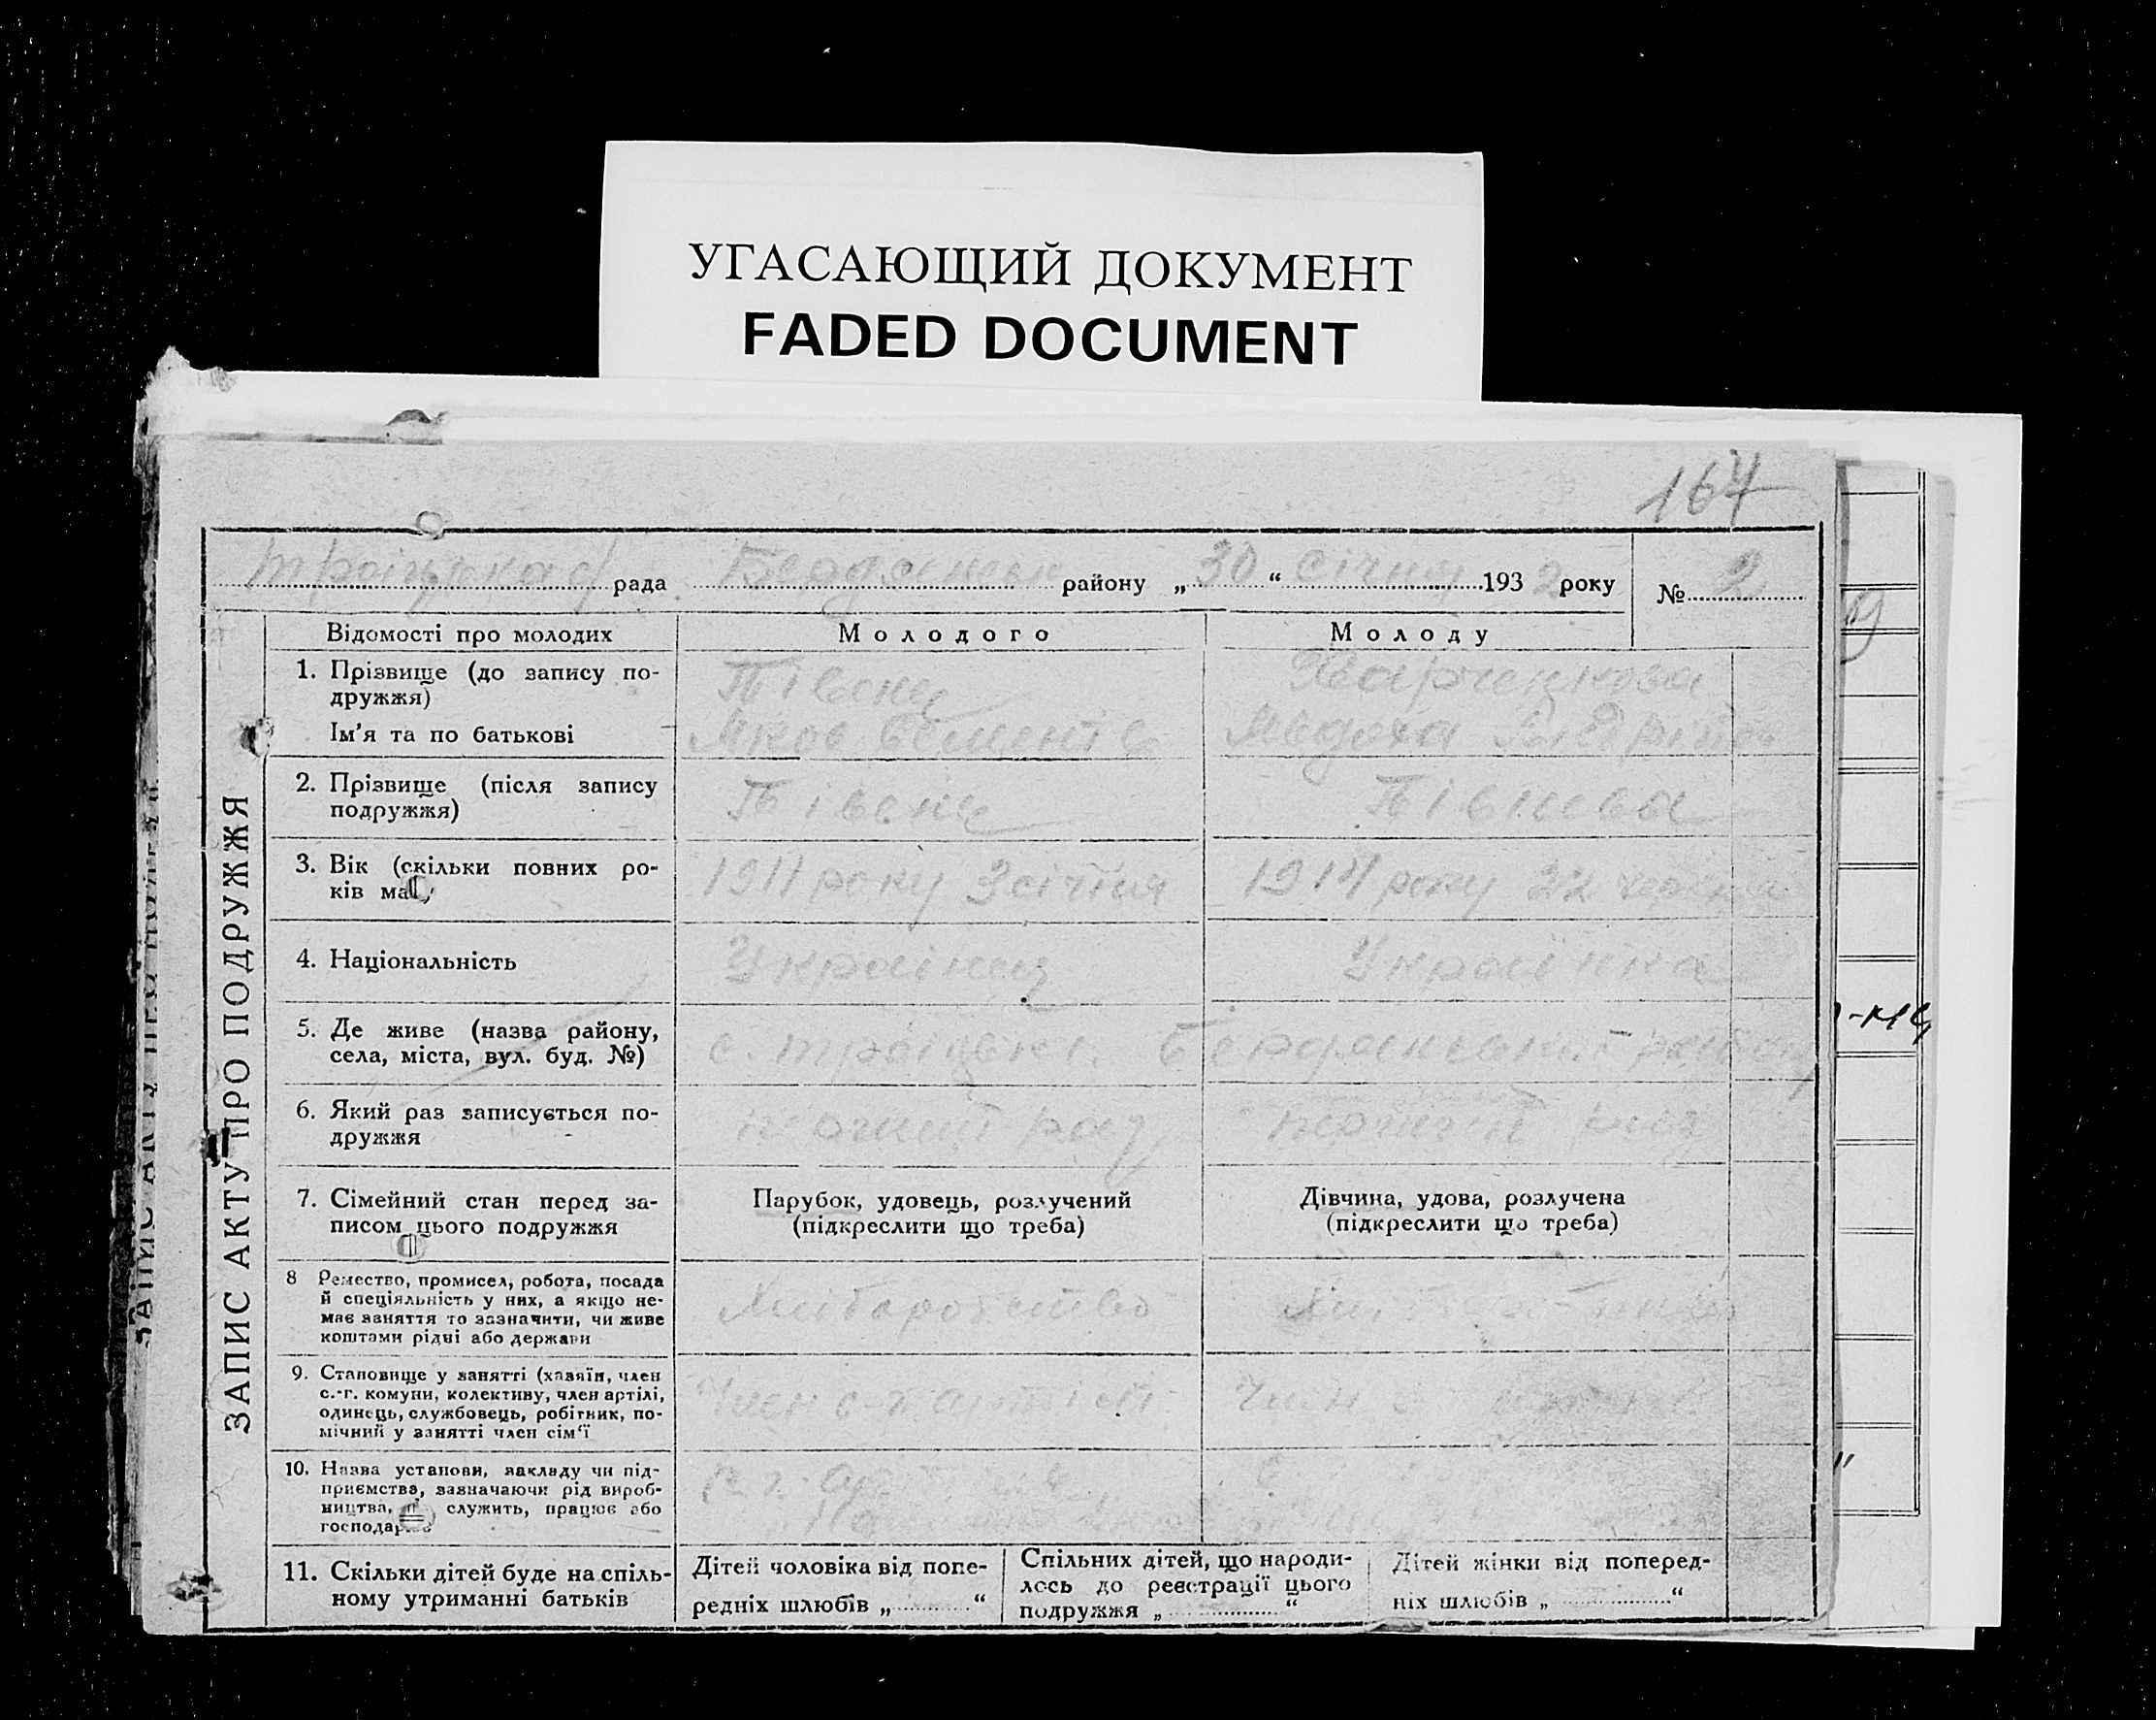 УГАСАЮЩИЙ ДОКУМЕНТ
FADED DOCUMENT
164
рада Бердянськ району „ 30 “ січня 193 2 року № 2
ЗАПИС АКТУ ПРО ПОДРУЖЖЯ
Відомості про молодих
Молодого
Молоду
1. Прізвище (до запису по-
дружжя)
Ім'я та по батькові
Півень
Яков
Харченкова
Явдоха
2. Прізвище (після запису
подружжя)
Півень
Півнева
3. Вік (скільки повних ро-
ків має)
1911 року 3 січня
1914 року
4. Національність
Українец
Українка
5. Де живе (назва району,
села, міста, вул. буд. №)
с. Троіцьке Бердянський район
6. Який раз записується по-
дружжя
перший раз
перший раз
7. Сімейний стан перед за-
писом цього подружжя
Парубок, удовець, розлучений
(підкреслити що треба)
Дівчина, удова, розлучена
(підкреслити що треба)
8 Ремество, промисел, робота, посада
й спеціяльність у них, а якщо не-
має заняття то зазначити, чи живе
коштами рідні або держави
Хліборобство
9. Становище у занятті (хазяїн, член
с.-г. комуни, колективу, член артілі,
одинець, службовець, робітник, по-
мічний у занятті член сім'ї
Член с-г артілі
Член
10. Назва установи, закладу чи під-
приємства, зазначаючи рід вироб-
ництва, служить, працює або
господарює
11. Скільки дітей буде на спіль-
ному утриманні батьків
Дітей чоловіка від попе-
редніх шлюбів „ “
Спільних дітей, що народи-
лось до реєстрації цього
подружжя „ “
Дітей жінки від поперед-
ніх шлюбів „ “